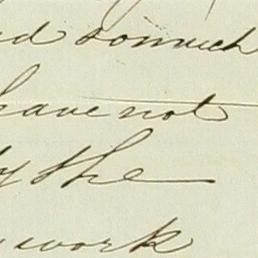 somuch
have not
the
work